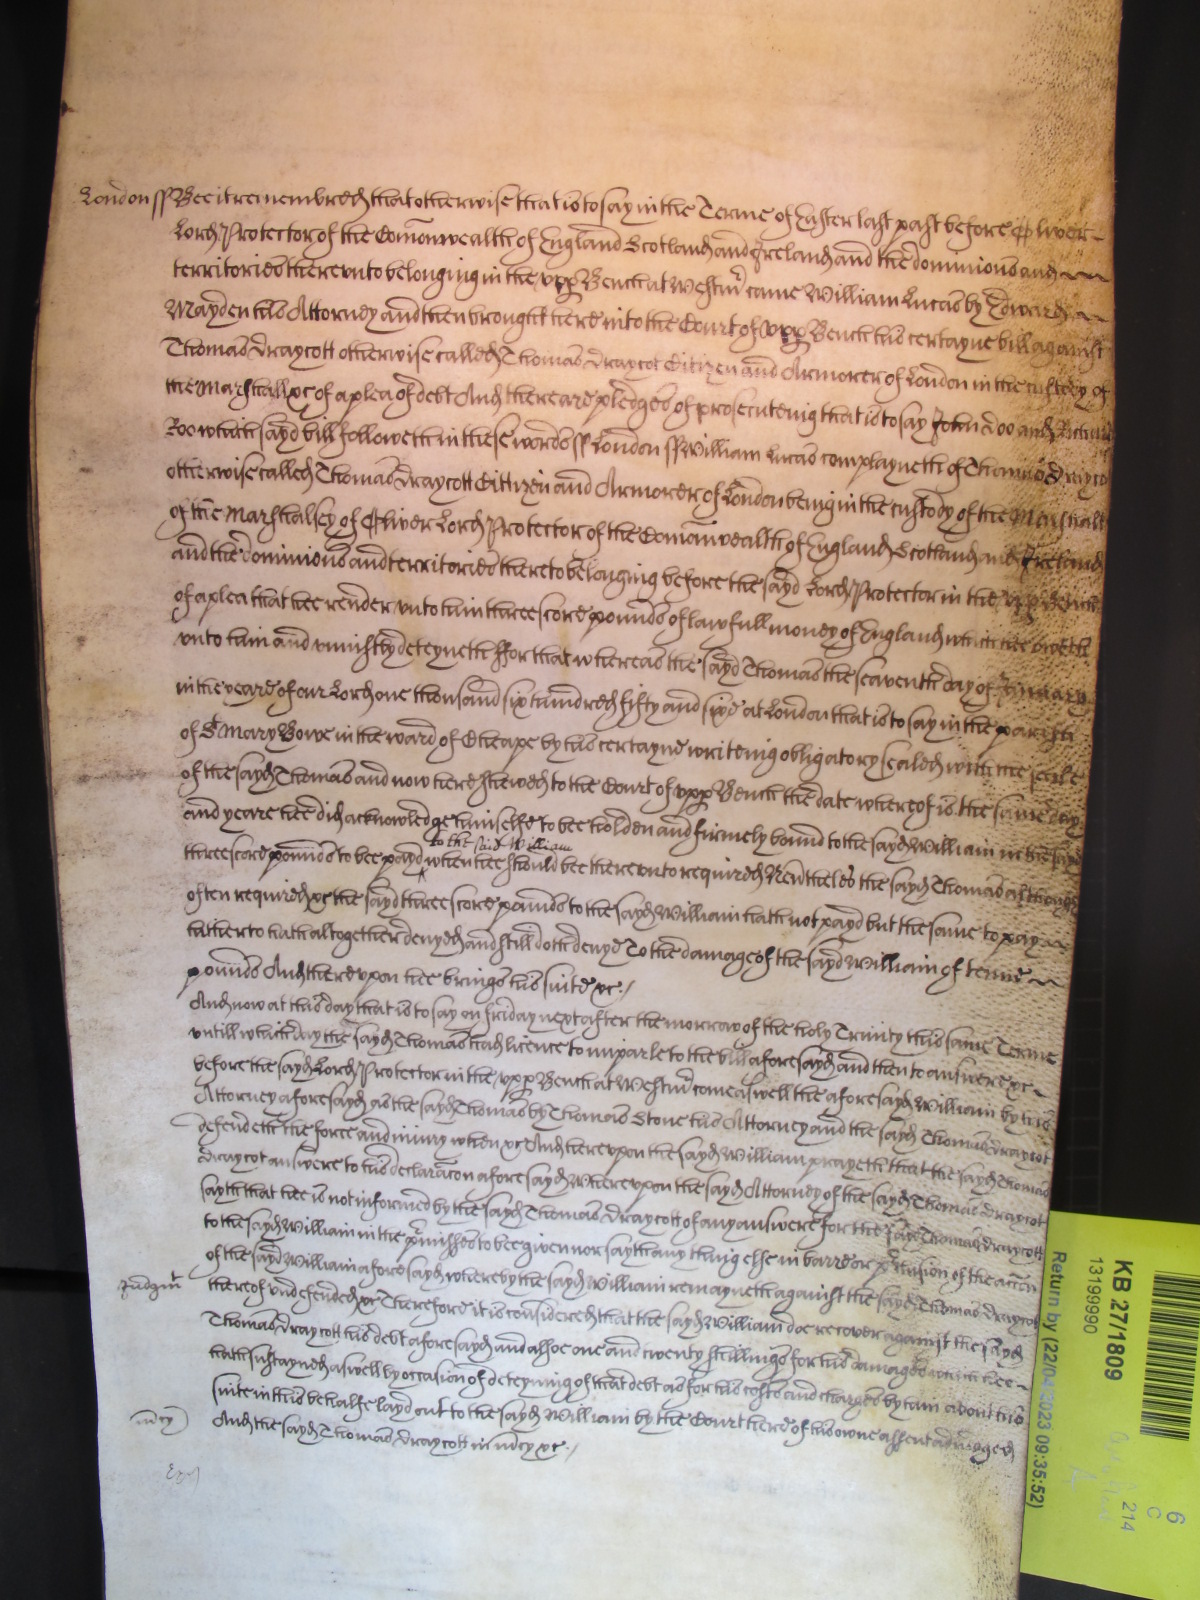 London ss Bee it remembred that otherwise that is to say in the Terme of Easter last past before Oliver
Lord Protector of the Com̄onwealth of England Scotland and Ireland and the dominions and
territories thereunto belonging in the upp Bench at Westmr came William Lucas by Edward
Mayden his Attorney and then brought here into the Court of upp Bench his certayne bill against
Thomas Draycott otherwise called Thomas Draycot Citizen and Armorer of London in the custody of
the Marshall &c of a plea of debt And there are pledges of prosecuteing that is to say John Doo and Richard
Roo which sayd bill followeth in these words ss London ss William Lucas complayneth of Thomas Draycot
otherwise called Thomas Draycott Cittizen and Armorer of London being in the custody of the Marshall
of the Marshalsey of Oliver Lord Protector of the Com̄onwealth of England Scotland and Ireland
and the dominions and territories thereto belonging before the sayd Lord Protector in the upp Bench
of a plea that hee render unto him three score pounds of lawfull money of England which hee oweth
unto him and uniustly deteyneth ffor that whereas the sayd Thomas the seaventh day of January
in the yeare of our Lord one thousand six hundred fifty and sixe at London that is to say in the parish
of St Mary Bowe in the ward of Cheape by his certayne writeing obligatory sealed with the seale
of the sayd Thomas and now here shewed to the Court of upp Bench the date whereof is the same day
and yeare hee did acknowledge himselfe to bee holden and firmely bound to the sayd William in the sayd
to the said William
three score pounds to bee payd when hee should bee thereunto required Neverthelesse the sayd Thomas although
often required &c the sayd three score pounds to the sayd William hath not payd but the same to pay
hitherto hath altogether denyed and still doth denye To the damage of the sayd William of tenne
pounds And thereupon hee brings his suite &c
And now at this day that is to say on friday next after the morrow of the holy Trinity this same Terme
untill which day the sayd Thomas had licence to imparle to the bill aforesayd and then to answere &c
before the sayd Lord Protector in the upp Bench at Westmr come aswell the aforesayd William by his
Attorney aforesayd as the sayd Thomas by Thomas Stone his Attorney and the sayd Thomas Draycot
defendeth the force and iniury when &c And thereupon the sayd William prayeth that the sayd Thomas
Draycot answere to his declaraćon aforesayd Whereupon the sayd Attorney of the sayd Thomas Draycot
sayth that hee is not informed by the sayd Thomas Draycott of any answere for the sayd Thomas Draycott
to the sayd William in the p̱misses to bee given nor sayth any thing else in barre or p̱clusion of the acćon
of the sayd William aforesayd whereby the sayd William remayneth against the sayd Thomas Draycot
Judgmt
thereof undefended &c Therefore it is considered that the sayd William doe recover against the sayd
Thomas Draycott his debt aforesayd and alsoe one and twenty shillings for his damages which hee
hath susteyned aswell by occasion of deteyning of that debt as for his costs and charges by him about his
suite in this behalfe layd out to the sayd William by the Court here of his owne assent adiudged
mcy
And the sayd Thomas Draycott in mcy &c
KB 27/1809
13199990
Return by (22/04/2023 09:35:52)
6
C
214